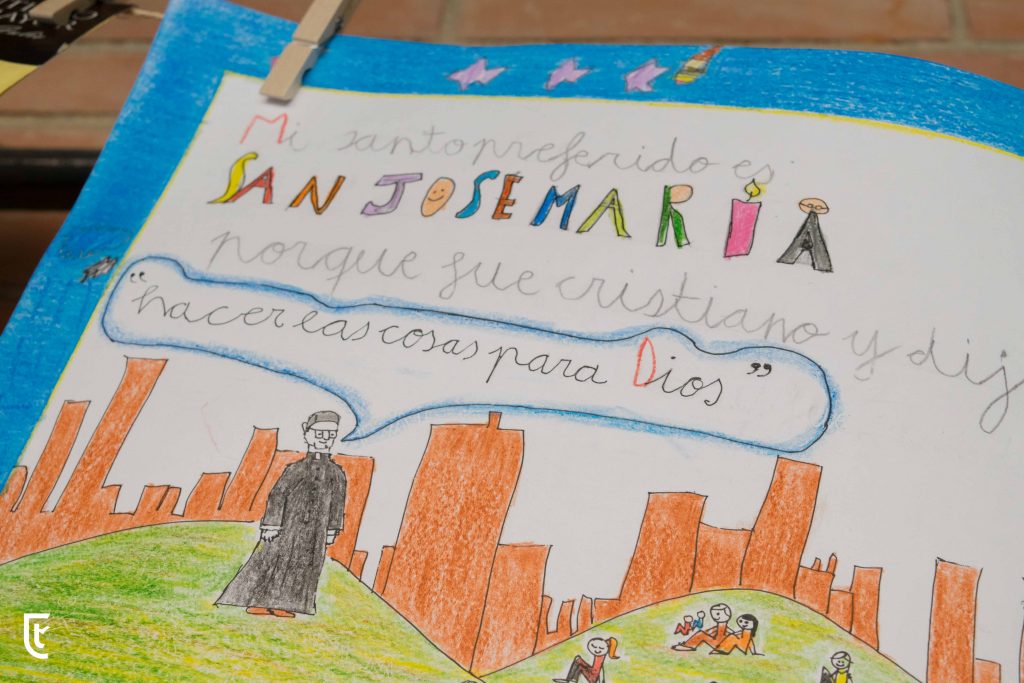 Mi santo preferido es
SAN JOSEMARIA
porque fue cristiano y dij
"hacer las cosas para Dios"